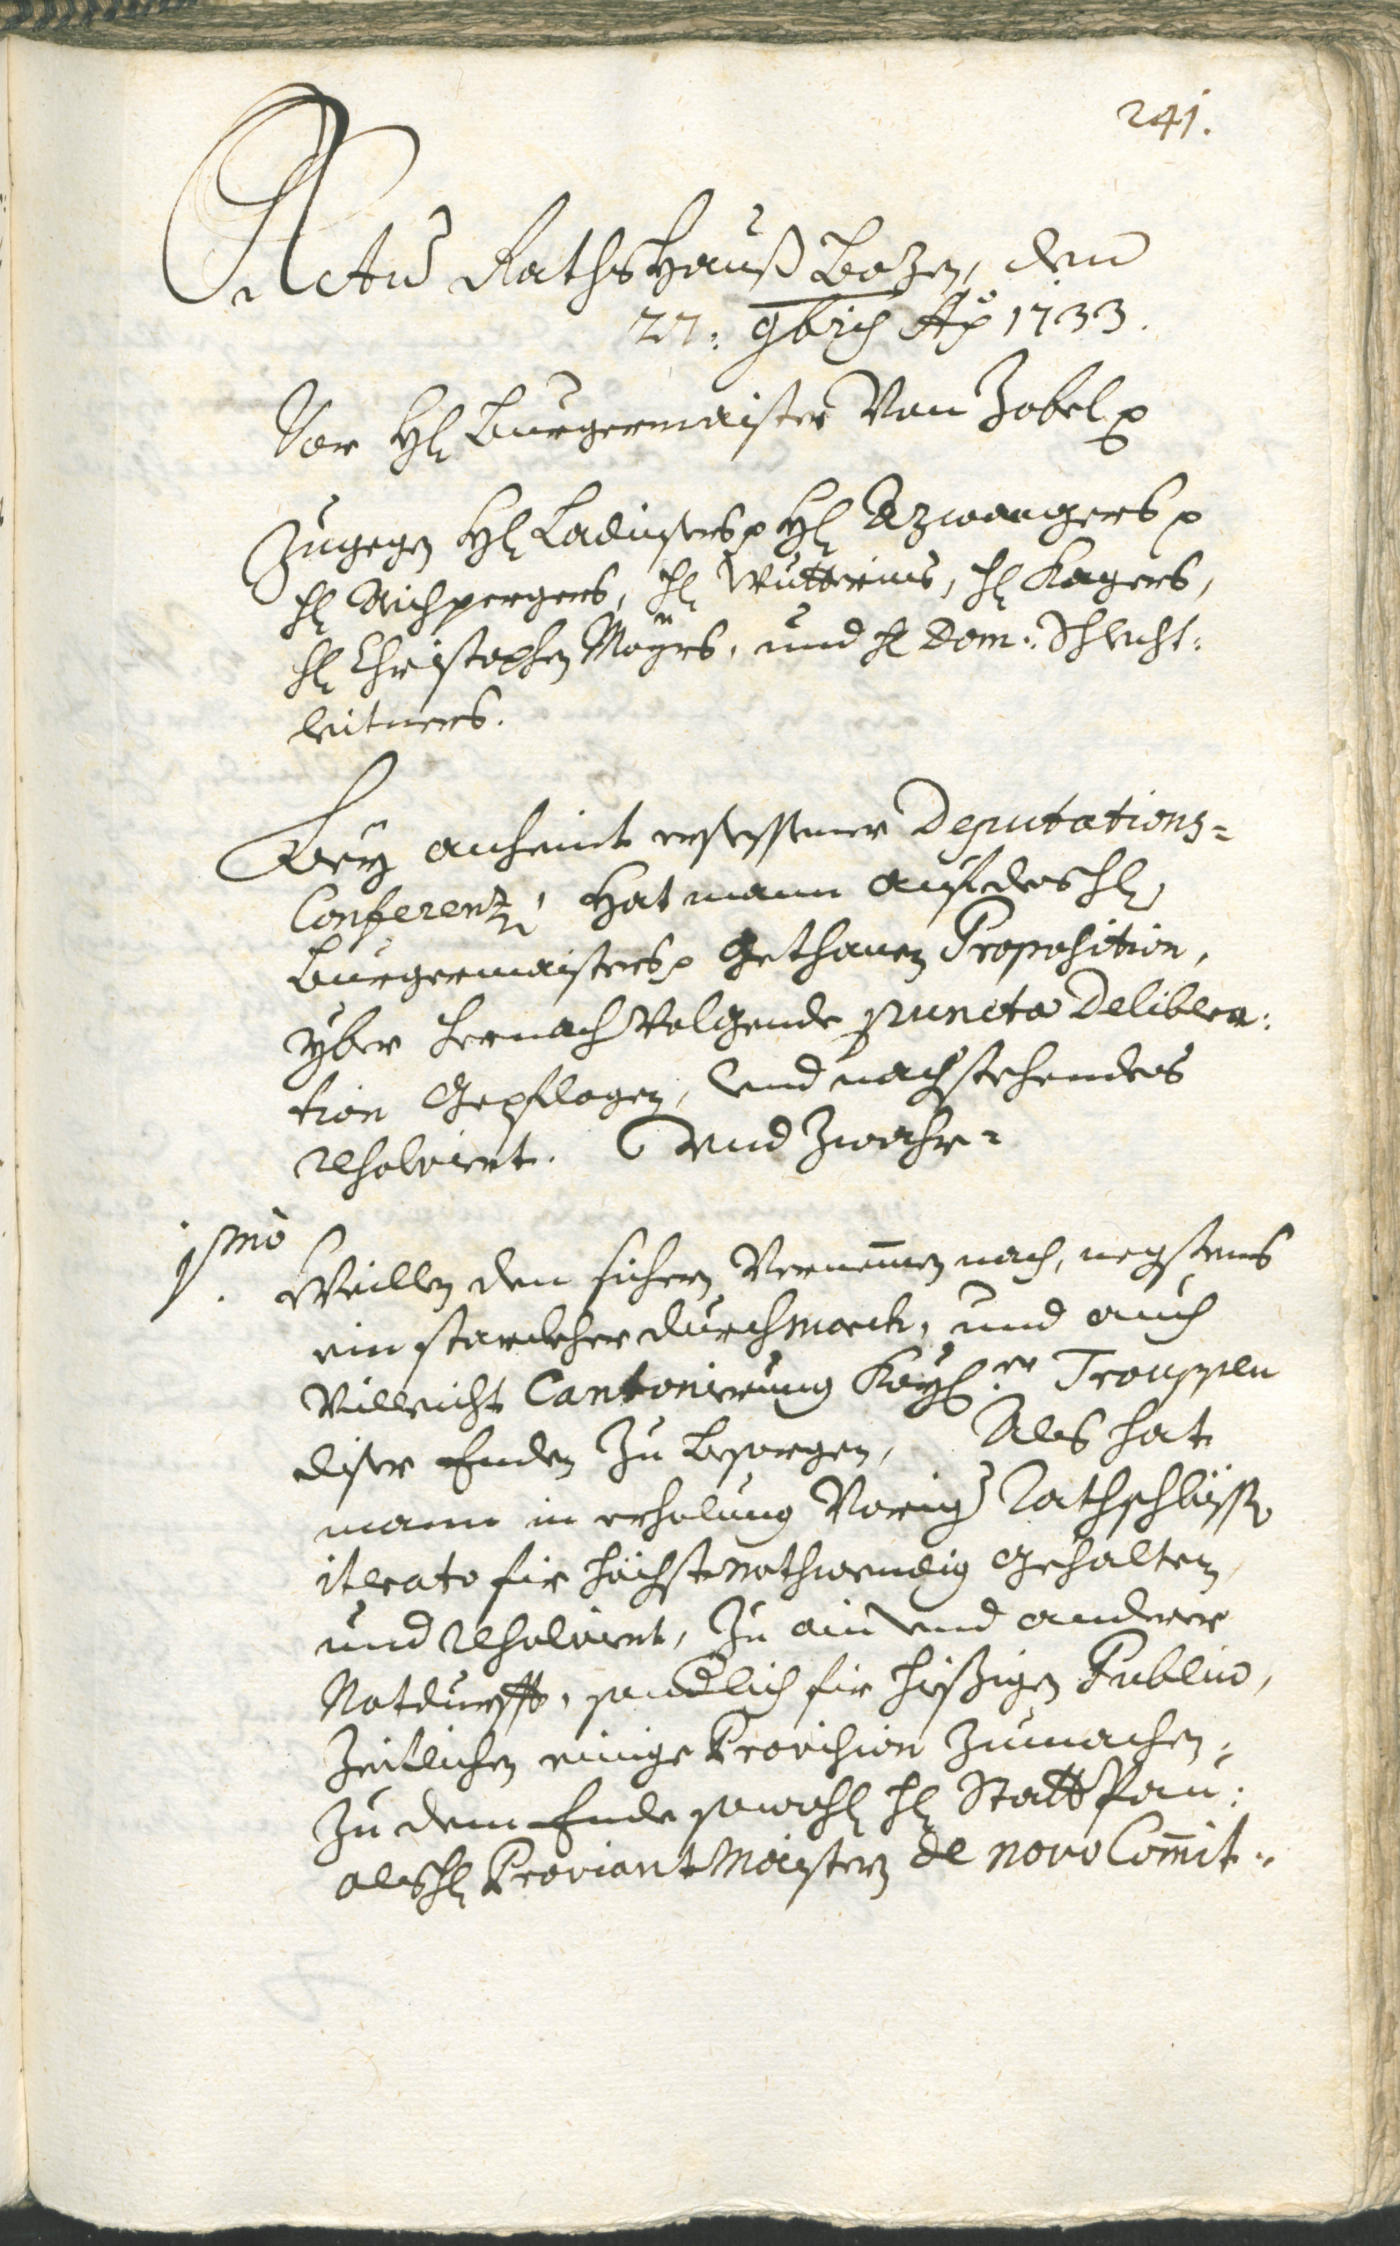 241.
Actu Rathshauß Bozen, den
27: 9bris Ao 1733.
Vor Hl Burgermaister Von Zobel p
Zugegen Hl Ladinsers p Hl Azwangers p
Hl Aichpergers, Hl Wutterins, Hl Kagers,
Hl Christophen Mayrs, und Hl Dom: Schlecht:
leitners.
Bey anheint ersessener Deputations=
Conferenz, Hat mann auf des Hl
Burgermaisters p Gethanen Proposition,
yber hernach Volgende puncta Delibera:
tion Gepflogen, und nachstehendes
resolviert. Und Zwahr=
1mo. Weillen dem sichern Vernemen nach, negstens
ein starckher durchmarch, und auch
Villeicht Cantonierung Kayl:er Trouppen
diser Enden Zu besorgen, Als hat
mann in erholung Vorig Rathschlüss
iterato für höchst nothwendig gehalten,
und resolviert, Zu ain und anderer
Notdurfft, sondlich für hießigen Publico,
Zeitlichen einige Provision Zumachen,
Zu dem Ende sowohl Hl Statt Pau:
als Hl Proviant Maistern de novo Comit: